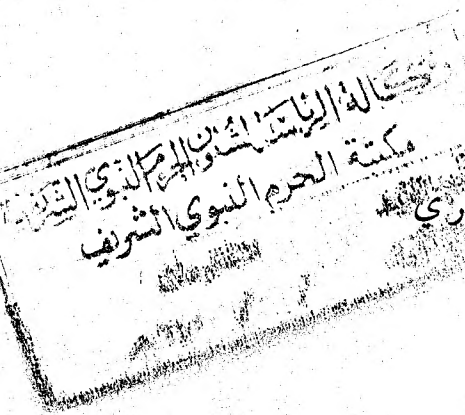 وكالة الرئاسة لشئون الحرم النبوي الشريف
مكتبة الحرم النبوي الشريف
ري